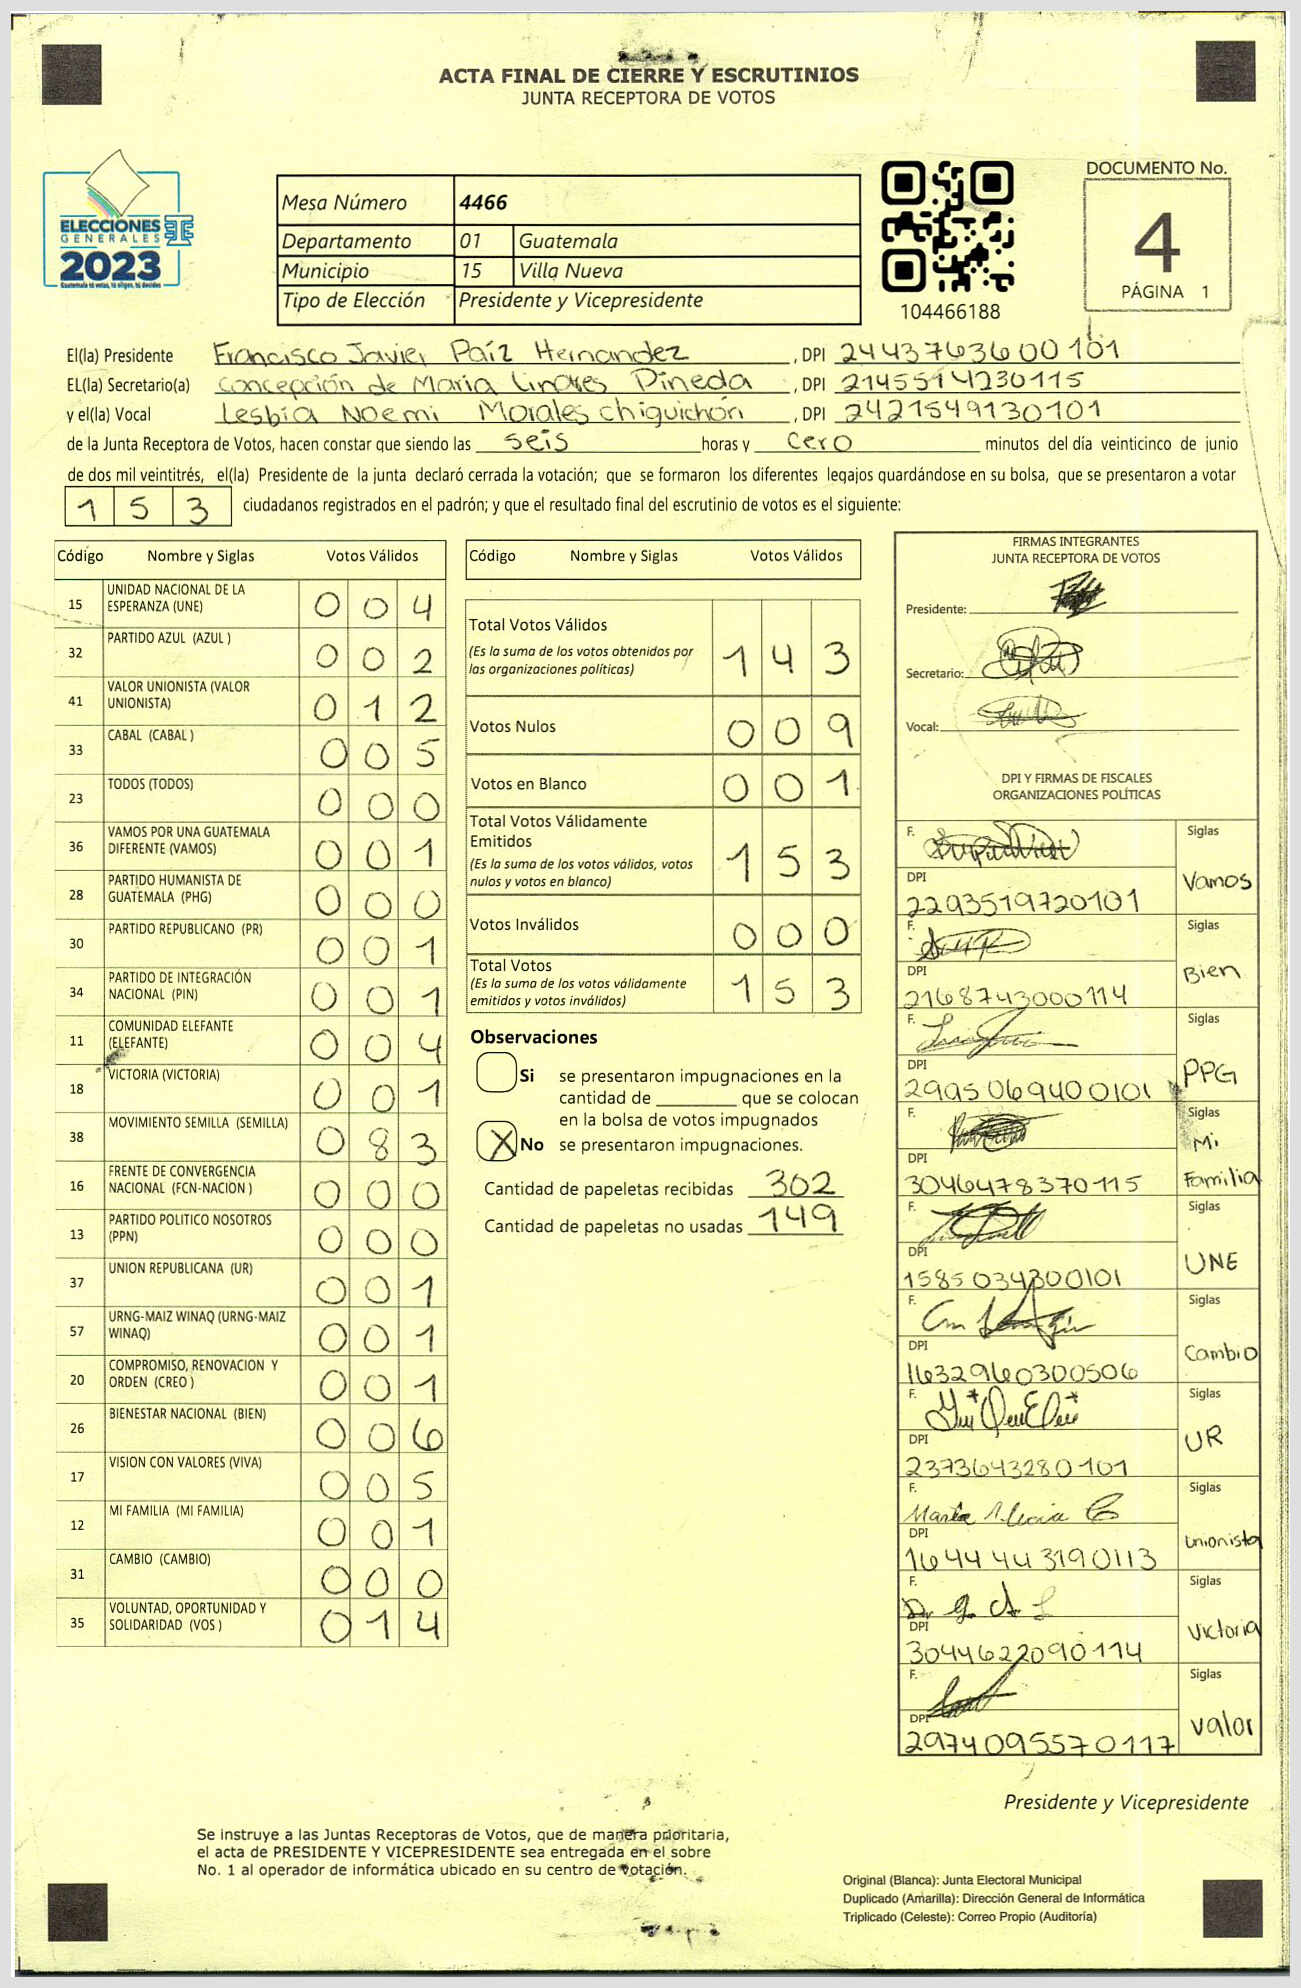 ACTA FINAL DE CIERRE Y ESCRUTINIOS
JUNTA RECEPTORA DE VOTOS
ELECCIONES
GENERALES
2023
Guatemala tú votas, tú eliges, tú decides
Mesa Número 4466
Departamento 01 Guatemala
Municipio 15 Villa Nueva
Tipo de Elección Presidente y Vicepresidente
104466188
DOCUMENTO No.
4
PÁGINA 1
El(la) Presidente Francisco Javier Paíz Hernandez, DPI 2443763600101
EL(la) Secretario(a) Concepción de María Linares Pineda, DPI 2145514230115
y el(la) Vocal Lesbia Noemi Morales chiguichón, DPI 2421549130101
de la Junta Receptora de Votos, hacen constar que siendo las seis horas y cero minutos del día veinticinco de junio
de dos mil veintitrés, el(la) Presidente de la junta declaró cerrada la votación; que se formaron los diferentes legajos guardándose en su bolsa, que se presentaron a votar
153 ciudadanos registrados en el padrón; y que el resultado final del escrutinio de votos es el siguiente:
Código Nombre y Siglas Votos Válidos
15 UNIDAD NACIONAL DE LA ESPERANZA (UNE) 004
32 PARTIDO AZUL (AZUL ) 002
41 VALOR UNIONISTA (VALOR UNIONISTA) 012
33 CABAL (CABAL ) 005
23 TODOS (TODOS) 000
36 VAMOS POR UNA GUATEMALA DIFERENTE (VAMOS) 001
28 PARTIDO HUMANISTA DE GUATEMALA (PHG) 000
30 PARTIDO REPUBLICANO (PR) 001
34 PARTIDO DE INTEGRACIÓN NACIONAL (PIN) 001
11 COMUNIDAD ELEFANTE (ELEFANTE) 004
18 VICTORIA (VICTORIA) 001
38 MOVIMIENTO SEMILLA (SEMILLA) 083
16 FRENTE DE CONVERGENCIA NACIONAL (FCN-NACION ) 000
13 PARTIDO POLITICO NOSOTROS (PPN) 000
37 UNION REPUBLICANA (UR) 001
57 URNG-MAIZ WINAQ (URNG-MAIZ WINAQ) 001
20 COMPROMISO, RENOVACION Y ORDEN (CREO ) 001
26 BIENESTAR NACIONAL (BIEN) 006
17 VISION CON VALORES (VIVA) 005
12 MI FAMILIA (MI FAMILIA) 001
31 CAMBIO (CAMBIO) 000
35 VOLUNTAD, OPORTUNIDAD Y SOLIDARIDAD (VOS ) 014
Código Nombre y Siglas Votos Válidos
Total Votos Válidos
(Es la suma de los votos obtenidos por las organizaciones políticas) 143
Votos Nulos 009
Votos en Blanco 001
Total Votos Válidamente Emitidos
(Es la suma de los votos válidos, votos nulos y votos en blanco) 153
Votos Inválidos 000
Total Votos
(Es la suma de los votos válidamente emitidos y votos inválidos) 153
Observaciones
Si se presentaron impugnaciones en la
cantidad de ________ que se colocan
en la bolsa de votos impugnados
X No se presentaron impugnaciones.
Cantidad de papeletas recibidas 302
Cantidad de papeletas no usadas 149
FIRMAS INTEGRANTES
JUNTA RECEPTORA DE VOTOS
Presidente:
Secretario:
Vocal:
DPI Y FIRMAS DE FISCALES
ORGANIZACIONES POLÍTICAS
F. Siglas
DPI Vamos
2293519720101
F. Siglas
DPI Bien
2168743000114
F. Siglas
DPI PPG
2995069400101
F. Siglas
DPI Mi Familia
3046478370115
F. Siglas
DPI UNE
1585034300101
F. Siglas
DPI Cambio
1632960300506
F. Siglas
DPI UR
2373643280101
F. Siglas
DPI Unionista
1644443190113
F. Siglas
DPI Victoria
3044622090114
F. Siglas
DPI Valor
2974095570117
Presidente y Vicepresidente
Se instruye a las Juntas Receptoras de Votos, que de manera prioritaria,
el acta de PRESIDENTE Y VICEPRESIDENTE sea entregada en el sobre
No. 1 al operador de informática ubicado en su centro de votación.
Original (Blanca): Junta Electoral Municipal
Duplicado (Amarilla): Dirección General de Informática
Triplicado (Celeste): Correo Propio (Auditoría)